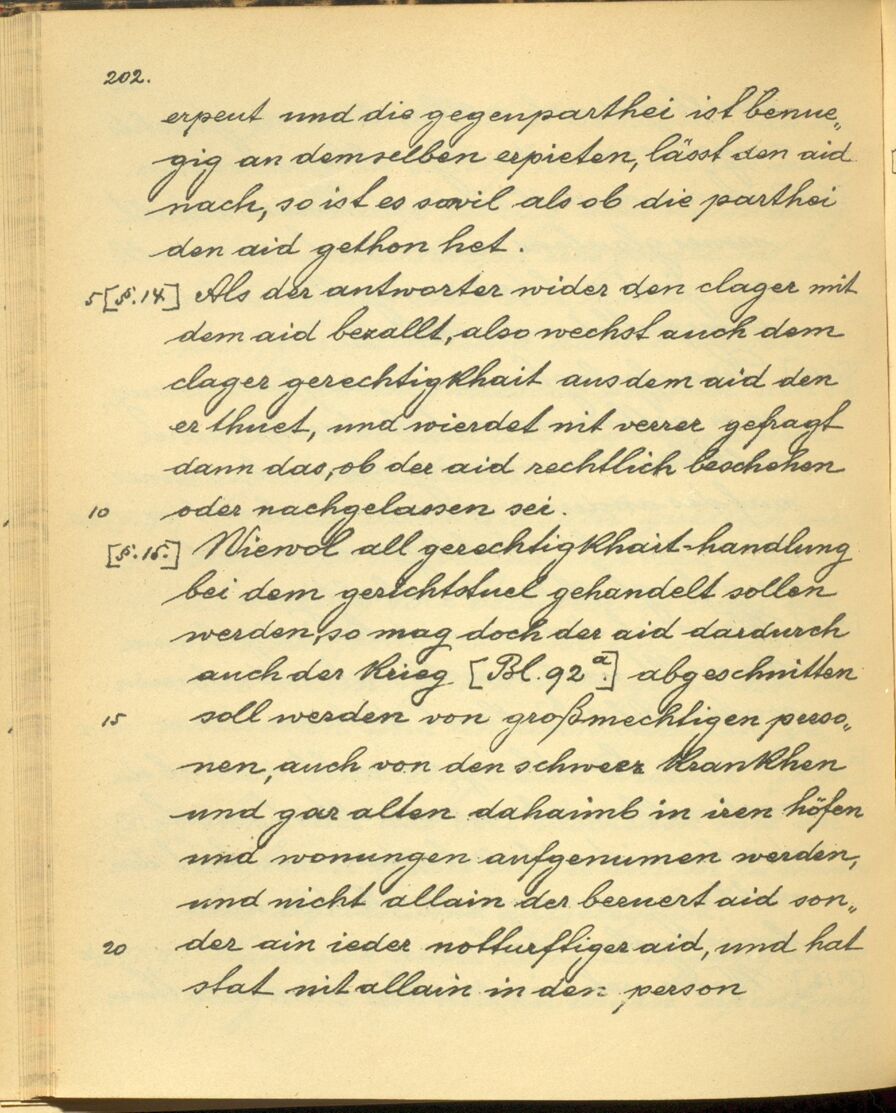 202.
erpeut und die gegenparthei ist benue„
gig an demselben erpieten, lässt den aid
nach, so ist es sovil als ob die parthei
den aid gethon het.
5 [§.14] Als der antworter wider den clager mit
dem aid bezallt, also wechst auch dem
clager gerechtigkhait aus dem aid den
er thuet, und wierdet nit verrer gefragt
dann das, ob der aid rechtlich beschehen
10 oder nachgelassen sei.
[§.15.] Wiewol all gerechtigkhait-handlung
bei dem gerichtstuel gehandelt sollen
werden, so mag doch der aid dardurch
auch der krieg [Bl. 92a.] abgeschnitten
15 soll werden von großmechtigen perso„
nen, auch von den schweer krankhen
und gar alten dahaimb in iren höfen
und wonungen aufgenumen werden,
und nicht allain der beruert aid son„
20 der ain ieder notturftiger aid, und hat
stat nit allain in den person